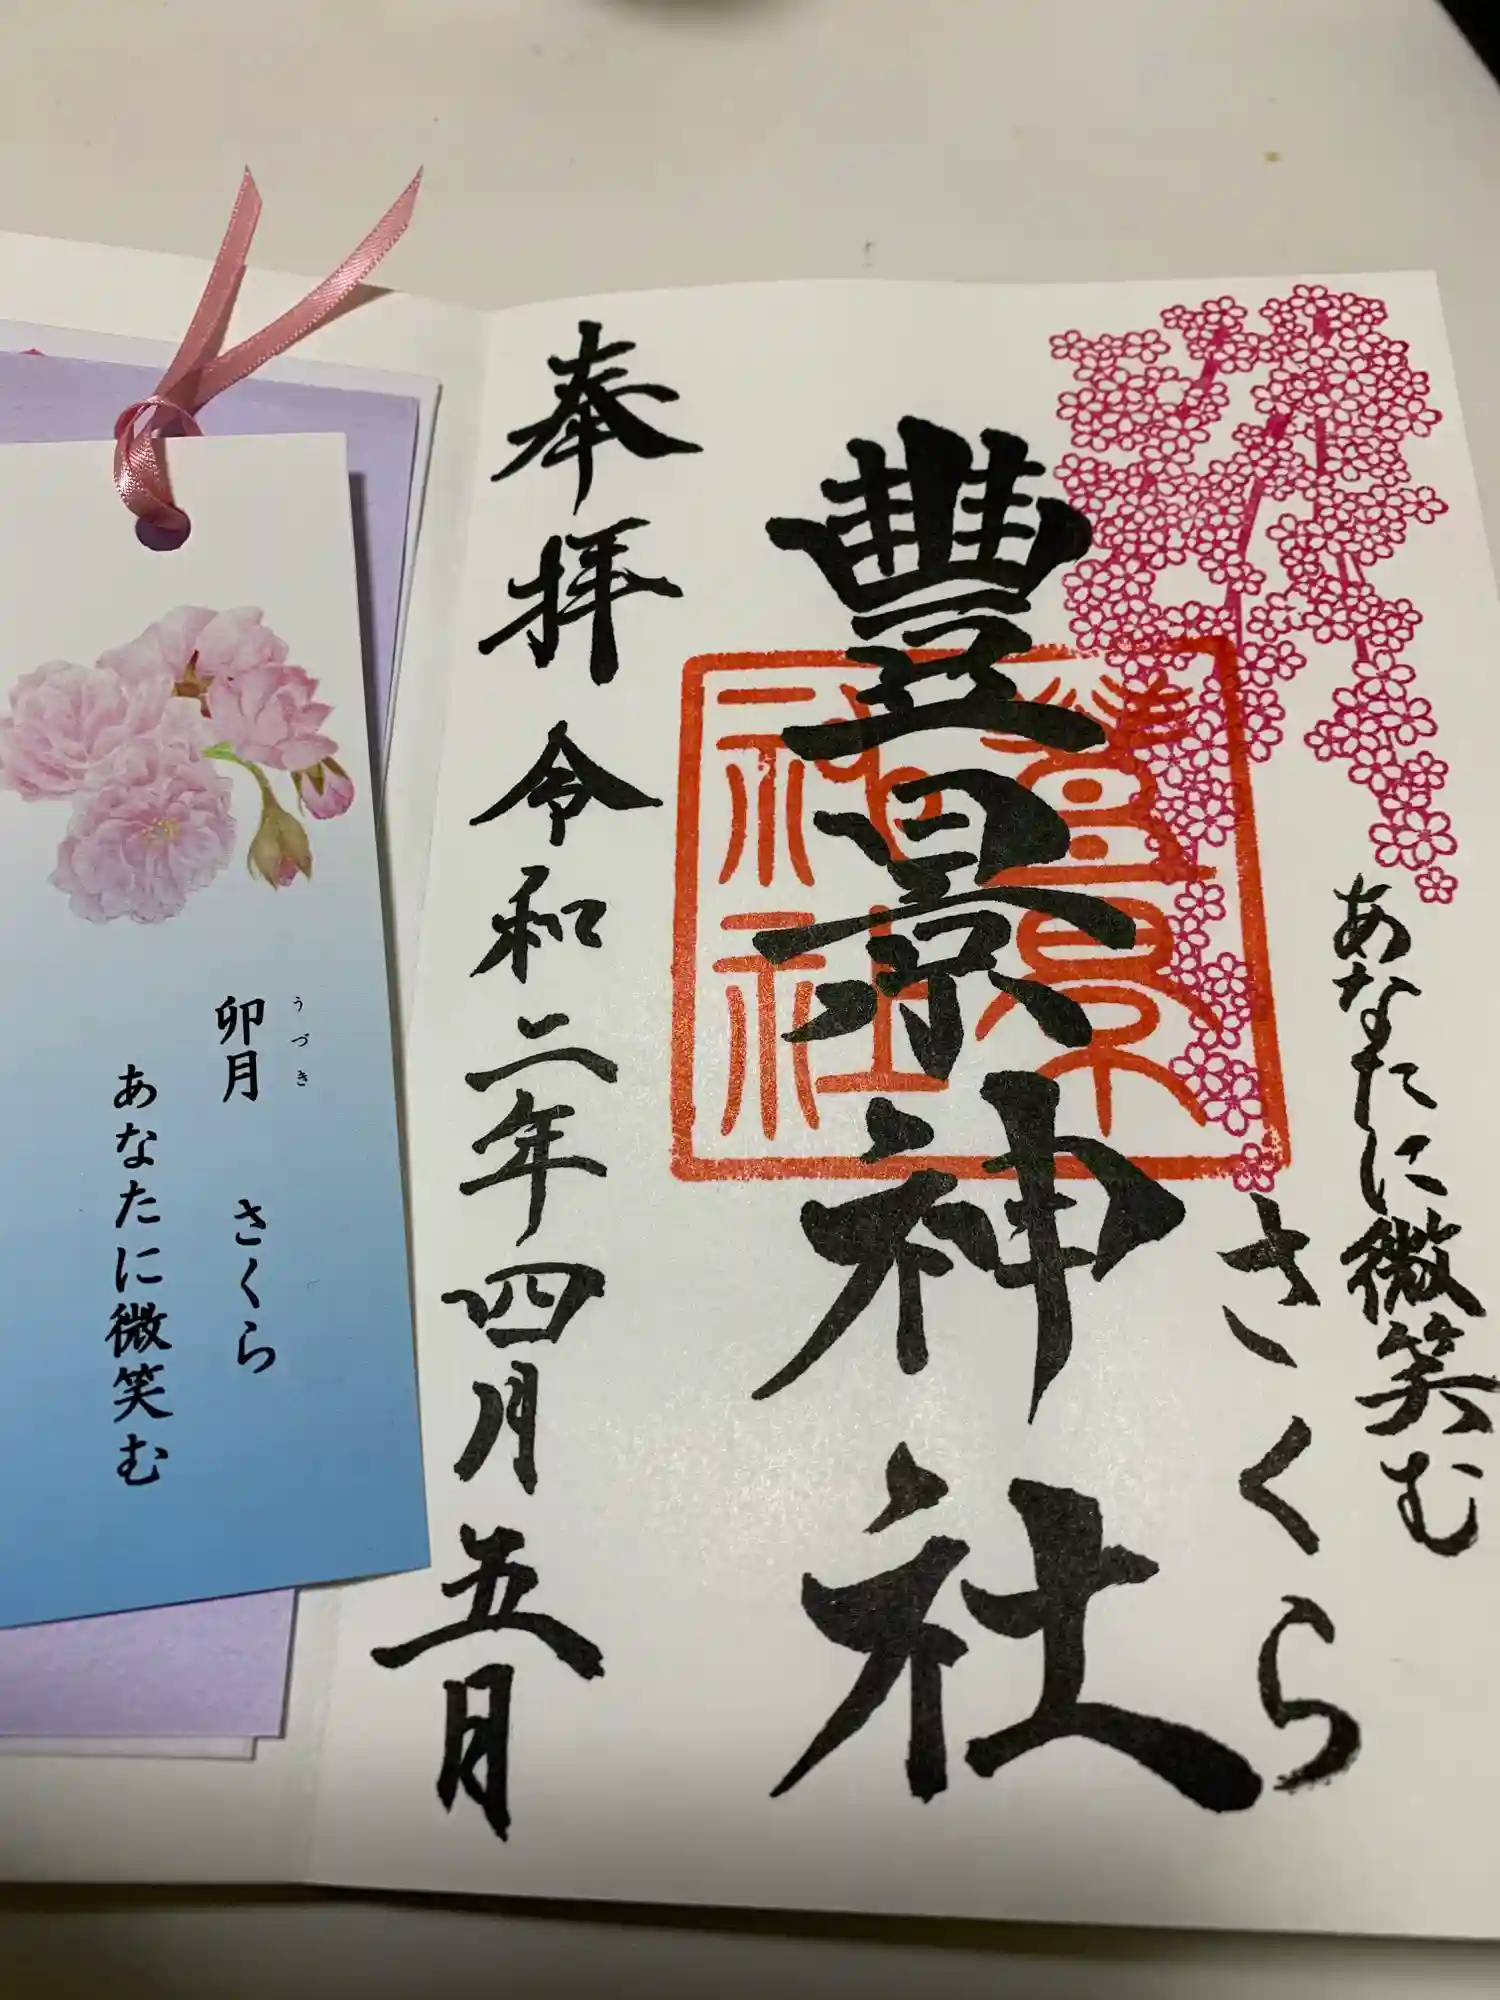 あなたに微笑む
さくら
豊景神社
豊景
神社
奉拝 令和二年四月五日
うづき
卯月 さくら
あなたに微笑む